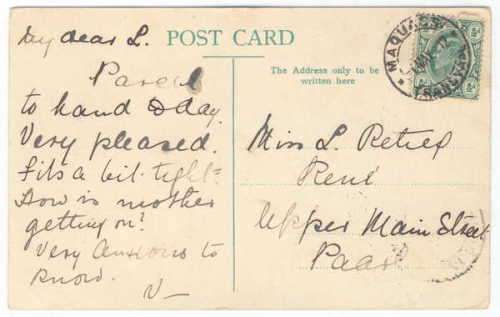 My dear L.
POST CARD
Parcel
to hand today.
Very pleased.
Fits a bit tight.
How is mother
getting on?
Very anxious to
know.
V—
The Address only to be
written here
Miss L. Retief
René
Upper Main Street
Paarl
MAQUASSI
TRANSVAAL